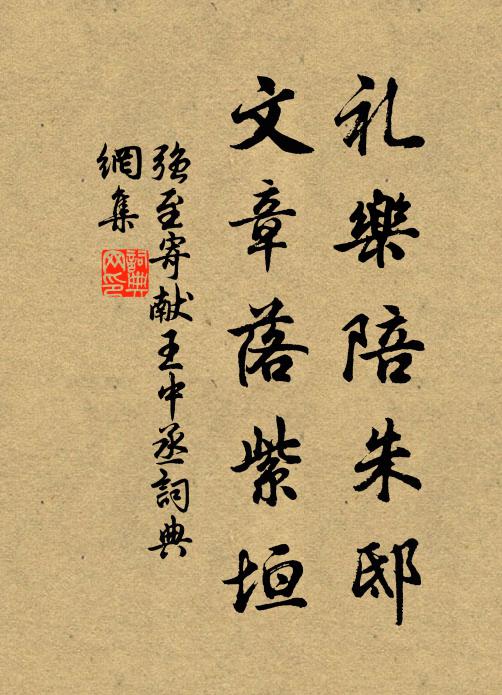 礼樂陪朱邸
文章落紫垣
強至寄献王中丞詞典
網集
詞典網印